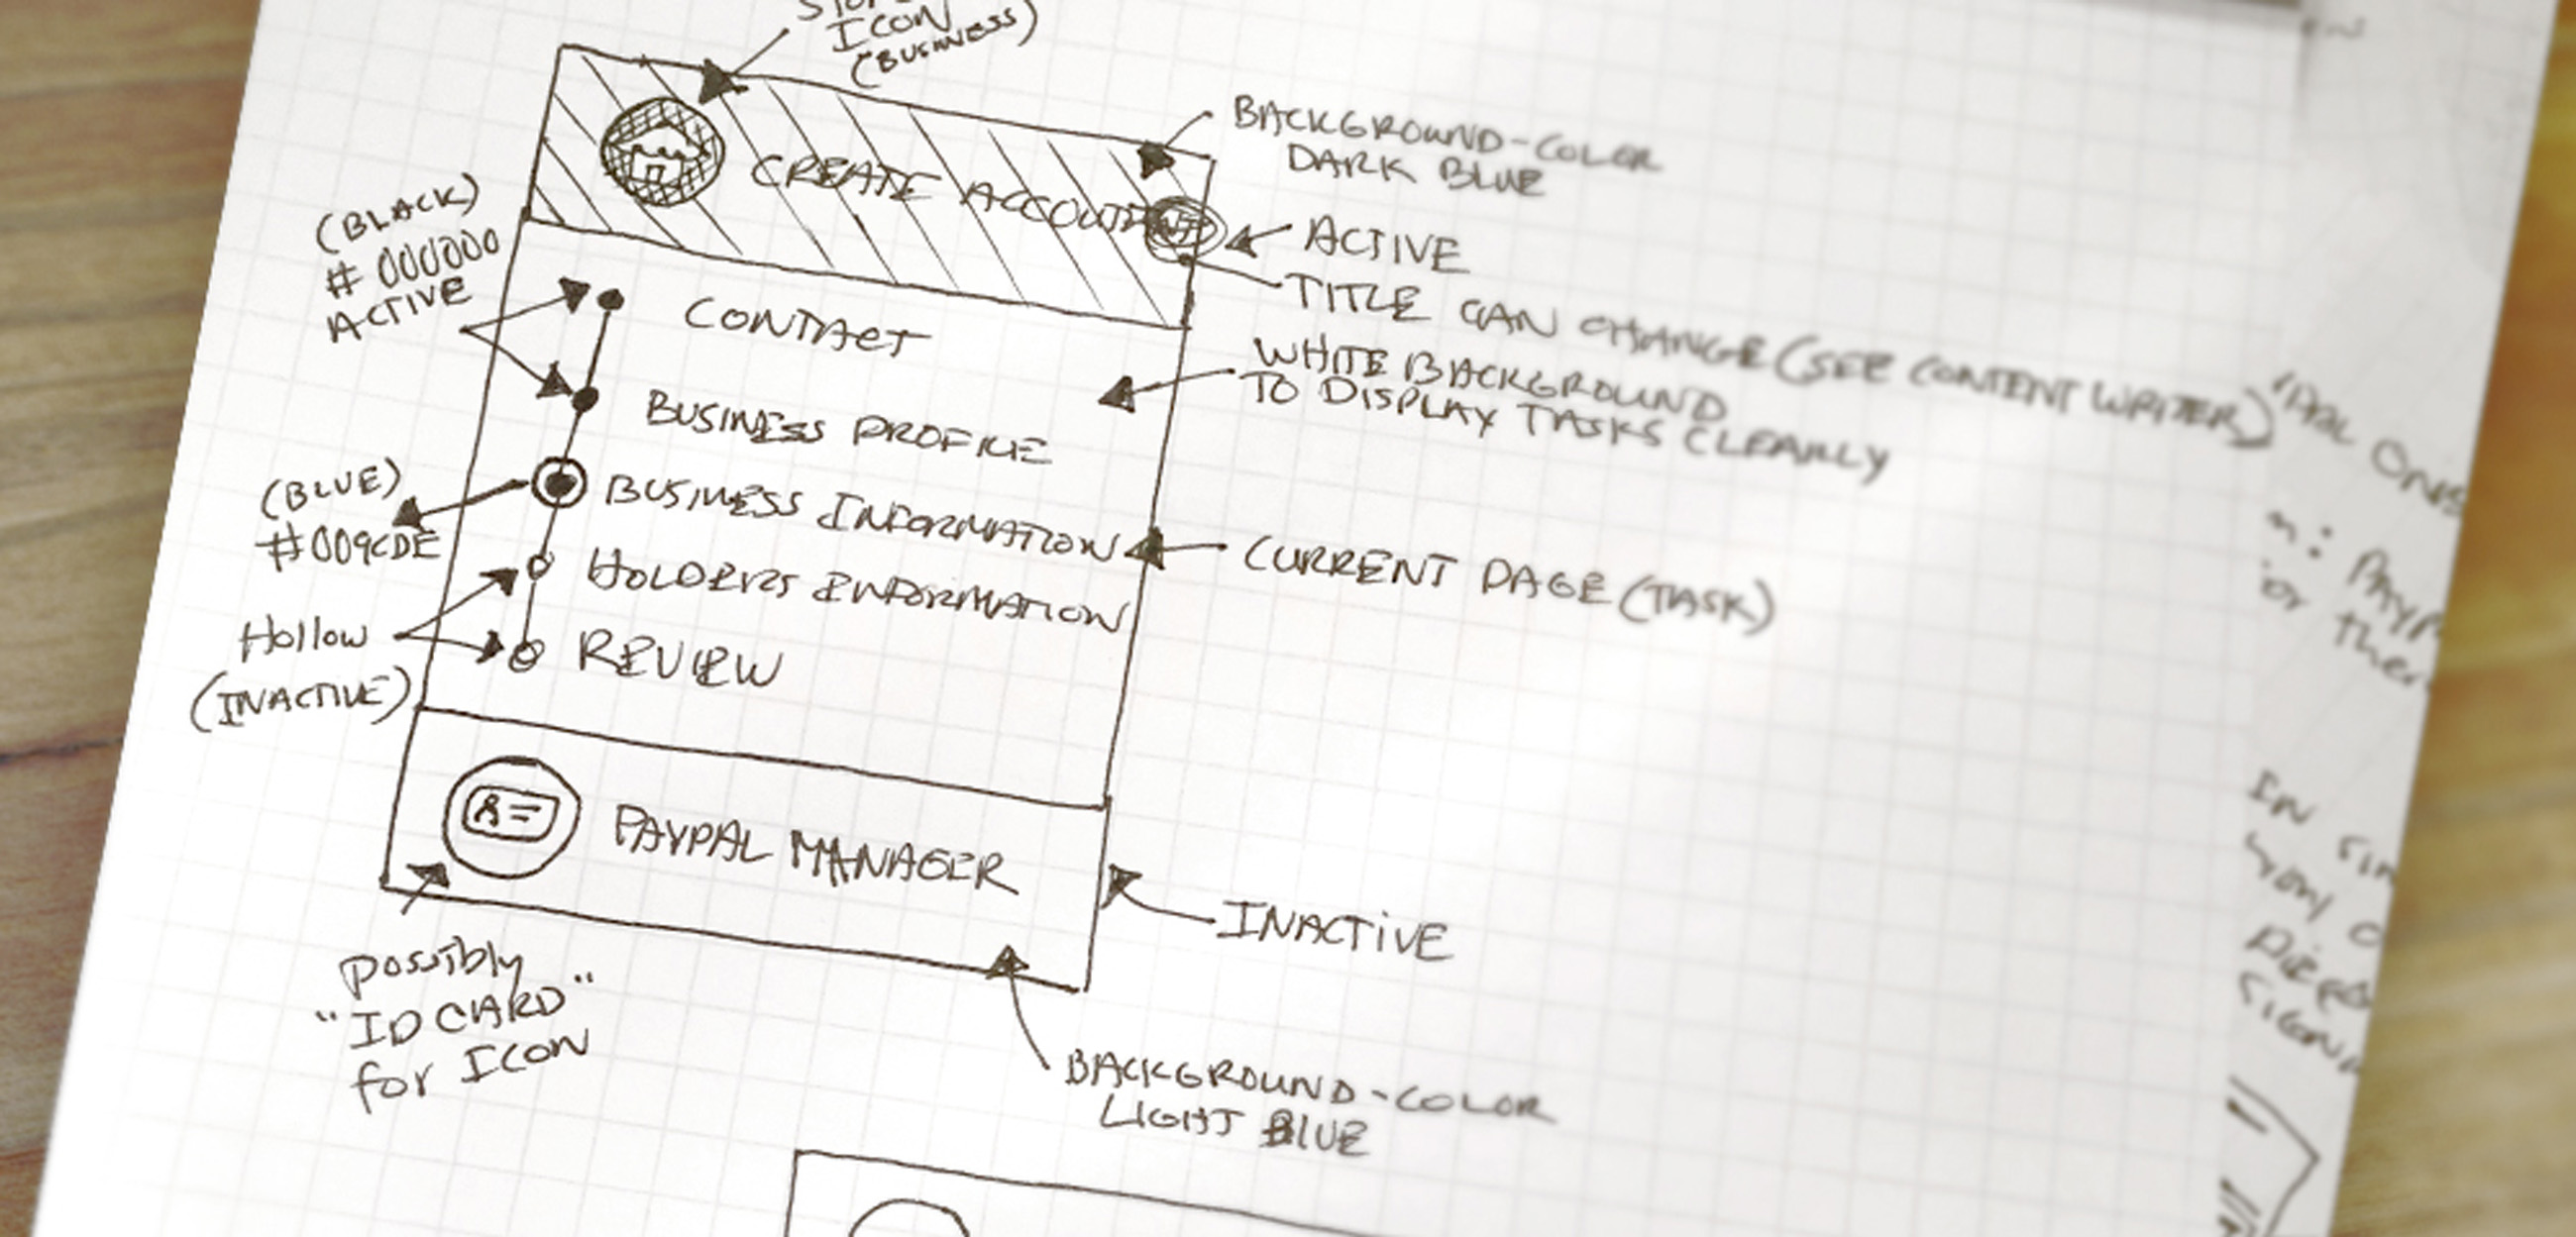 ICON
(BUSINESS)
BACKGROUND-COLOR
DARK BLUE
CREATE ACCOUNT
ACTIVE
TITLE CAN CHANGE (SEE CONTENT WRITER)
(BLACK)
# 000000
ACTIVE
CONTACT
WHITE BACKGROUND
TO DISPLAY TASKS CLEARLY
BUSINESS PROFILE
(BLUE)
#009CDE
BUSINESS INFORMATION
CURRENT PAGE (TASK)
HOLDERS INFORMATION
Hollow
(INACTIVE)
REVIEW
PAYPAL MANAGER
INACTIVE
possibly
"ID CARD"
for ICON
BACKGROUND-COLOR
LIGHT BLUE
IN